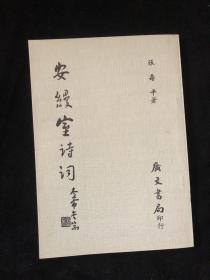 張壽平著
安縵室詩詞
廣文書局印行